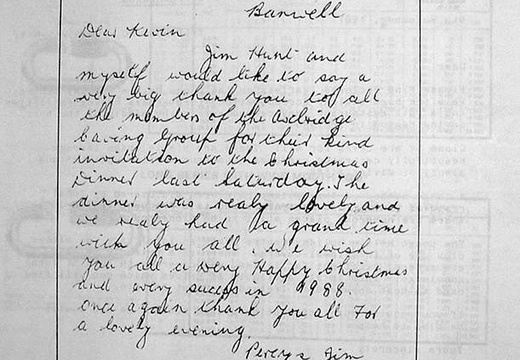 Banwell
Dear Kevin
Jim Hunt and
myself would like to say a
very big thank you to all
the members of the Axbridge
Caving Group for their kind
invitation to the Christmas
Dinner last Saturday. The
dinner was realy lovely and
we realy had a grand time
with you all. We wish
you all a very Happy Christmas
and every success in 1988.
once again thank you all For
a lovely evening.
Percy & Jim